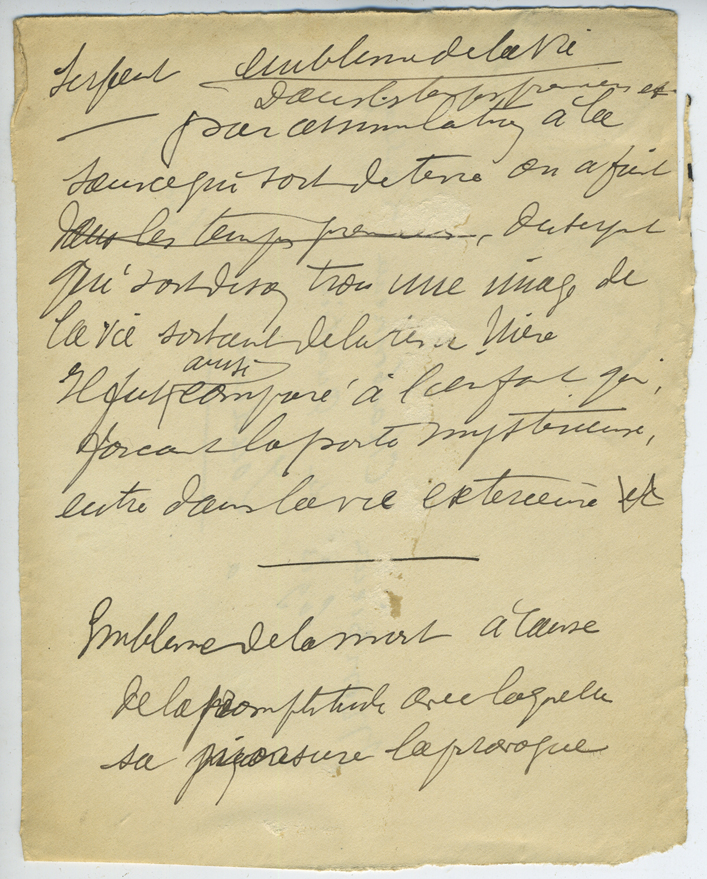 Serpent emblème de la vie
Dans les temps premiers et
par assimilation à la
source qui sort de terre on a fait
dans les temps premiers, du serpent
qui sort de son trou une image de
la vie sortant de la terre Mère
Il fut aussi comparé à l'enfant qui,
forçant la porte mystérieuse,
entre dans la vie extérieure
Emblème de la mort à cause
de la promptitude avec laquelle
sa piqure la provoque